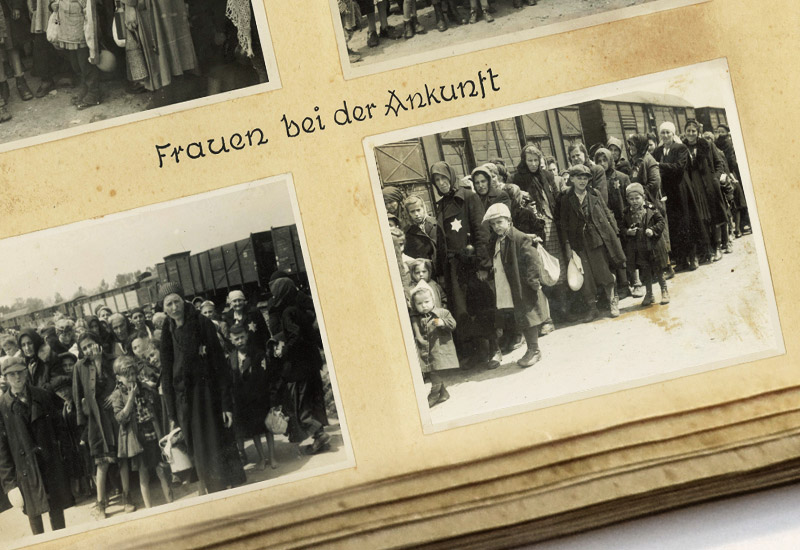 Frauen bei der Ankunft